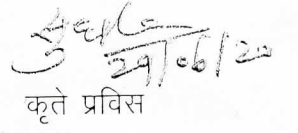 29/06/20
कृते प्रविस